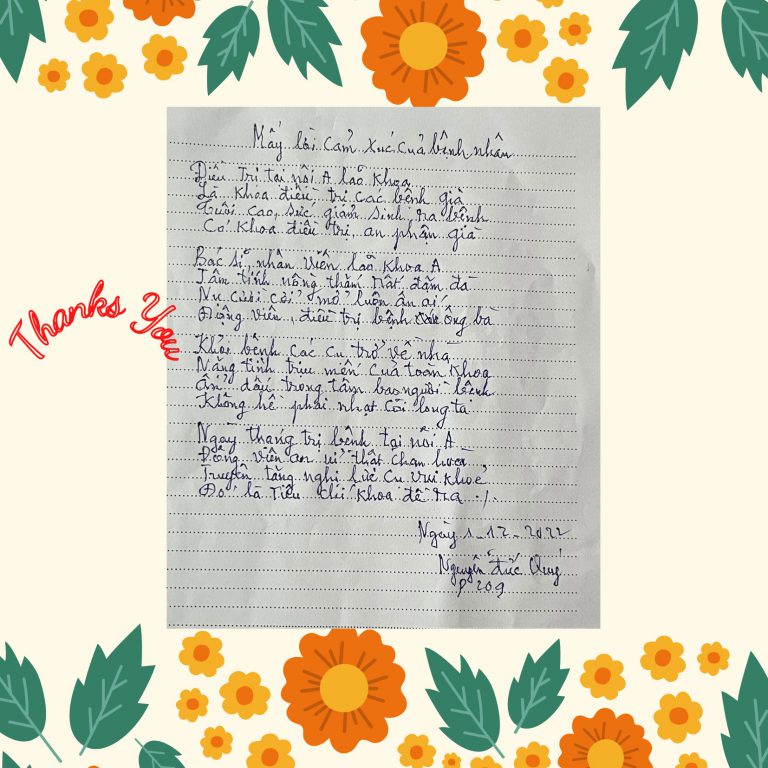 Mấy lời cảm xúc của bệnh nhân
Điều trị tại nội A lão khoa
Là khoa điều trị các bệnh già
Tuổi cao, sức giảm sinh ra bệnh
Có khoa điều trị, an phận già
Bác sĩ nhân viên lão khoa A
Tâm tính nồng thắm rất đậm đà
Nụ cười cởi mở luôn ân ái
Động viên, điều trị bệnh ông bà
Khỏi bệnh các cụ trở về nhà
Nặng tình trìu mến của toàn khoa
Ẩn dấu trong tâm bao người bệnh
Không hề phai nhạt cõi lòng ta
Thanks You
Ngày tháng trị bệnh tại nội A
Động viên an ủi thật chan hoà
Truyền tăng nghị lực cụ vui khoẻ
Đó là Tiêu chí khoa đề ra ./.
Ngày 1-12-2022
Nguyễn Đức Quý
P 209